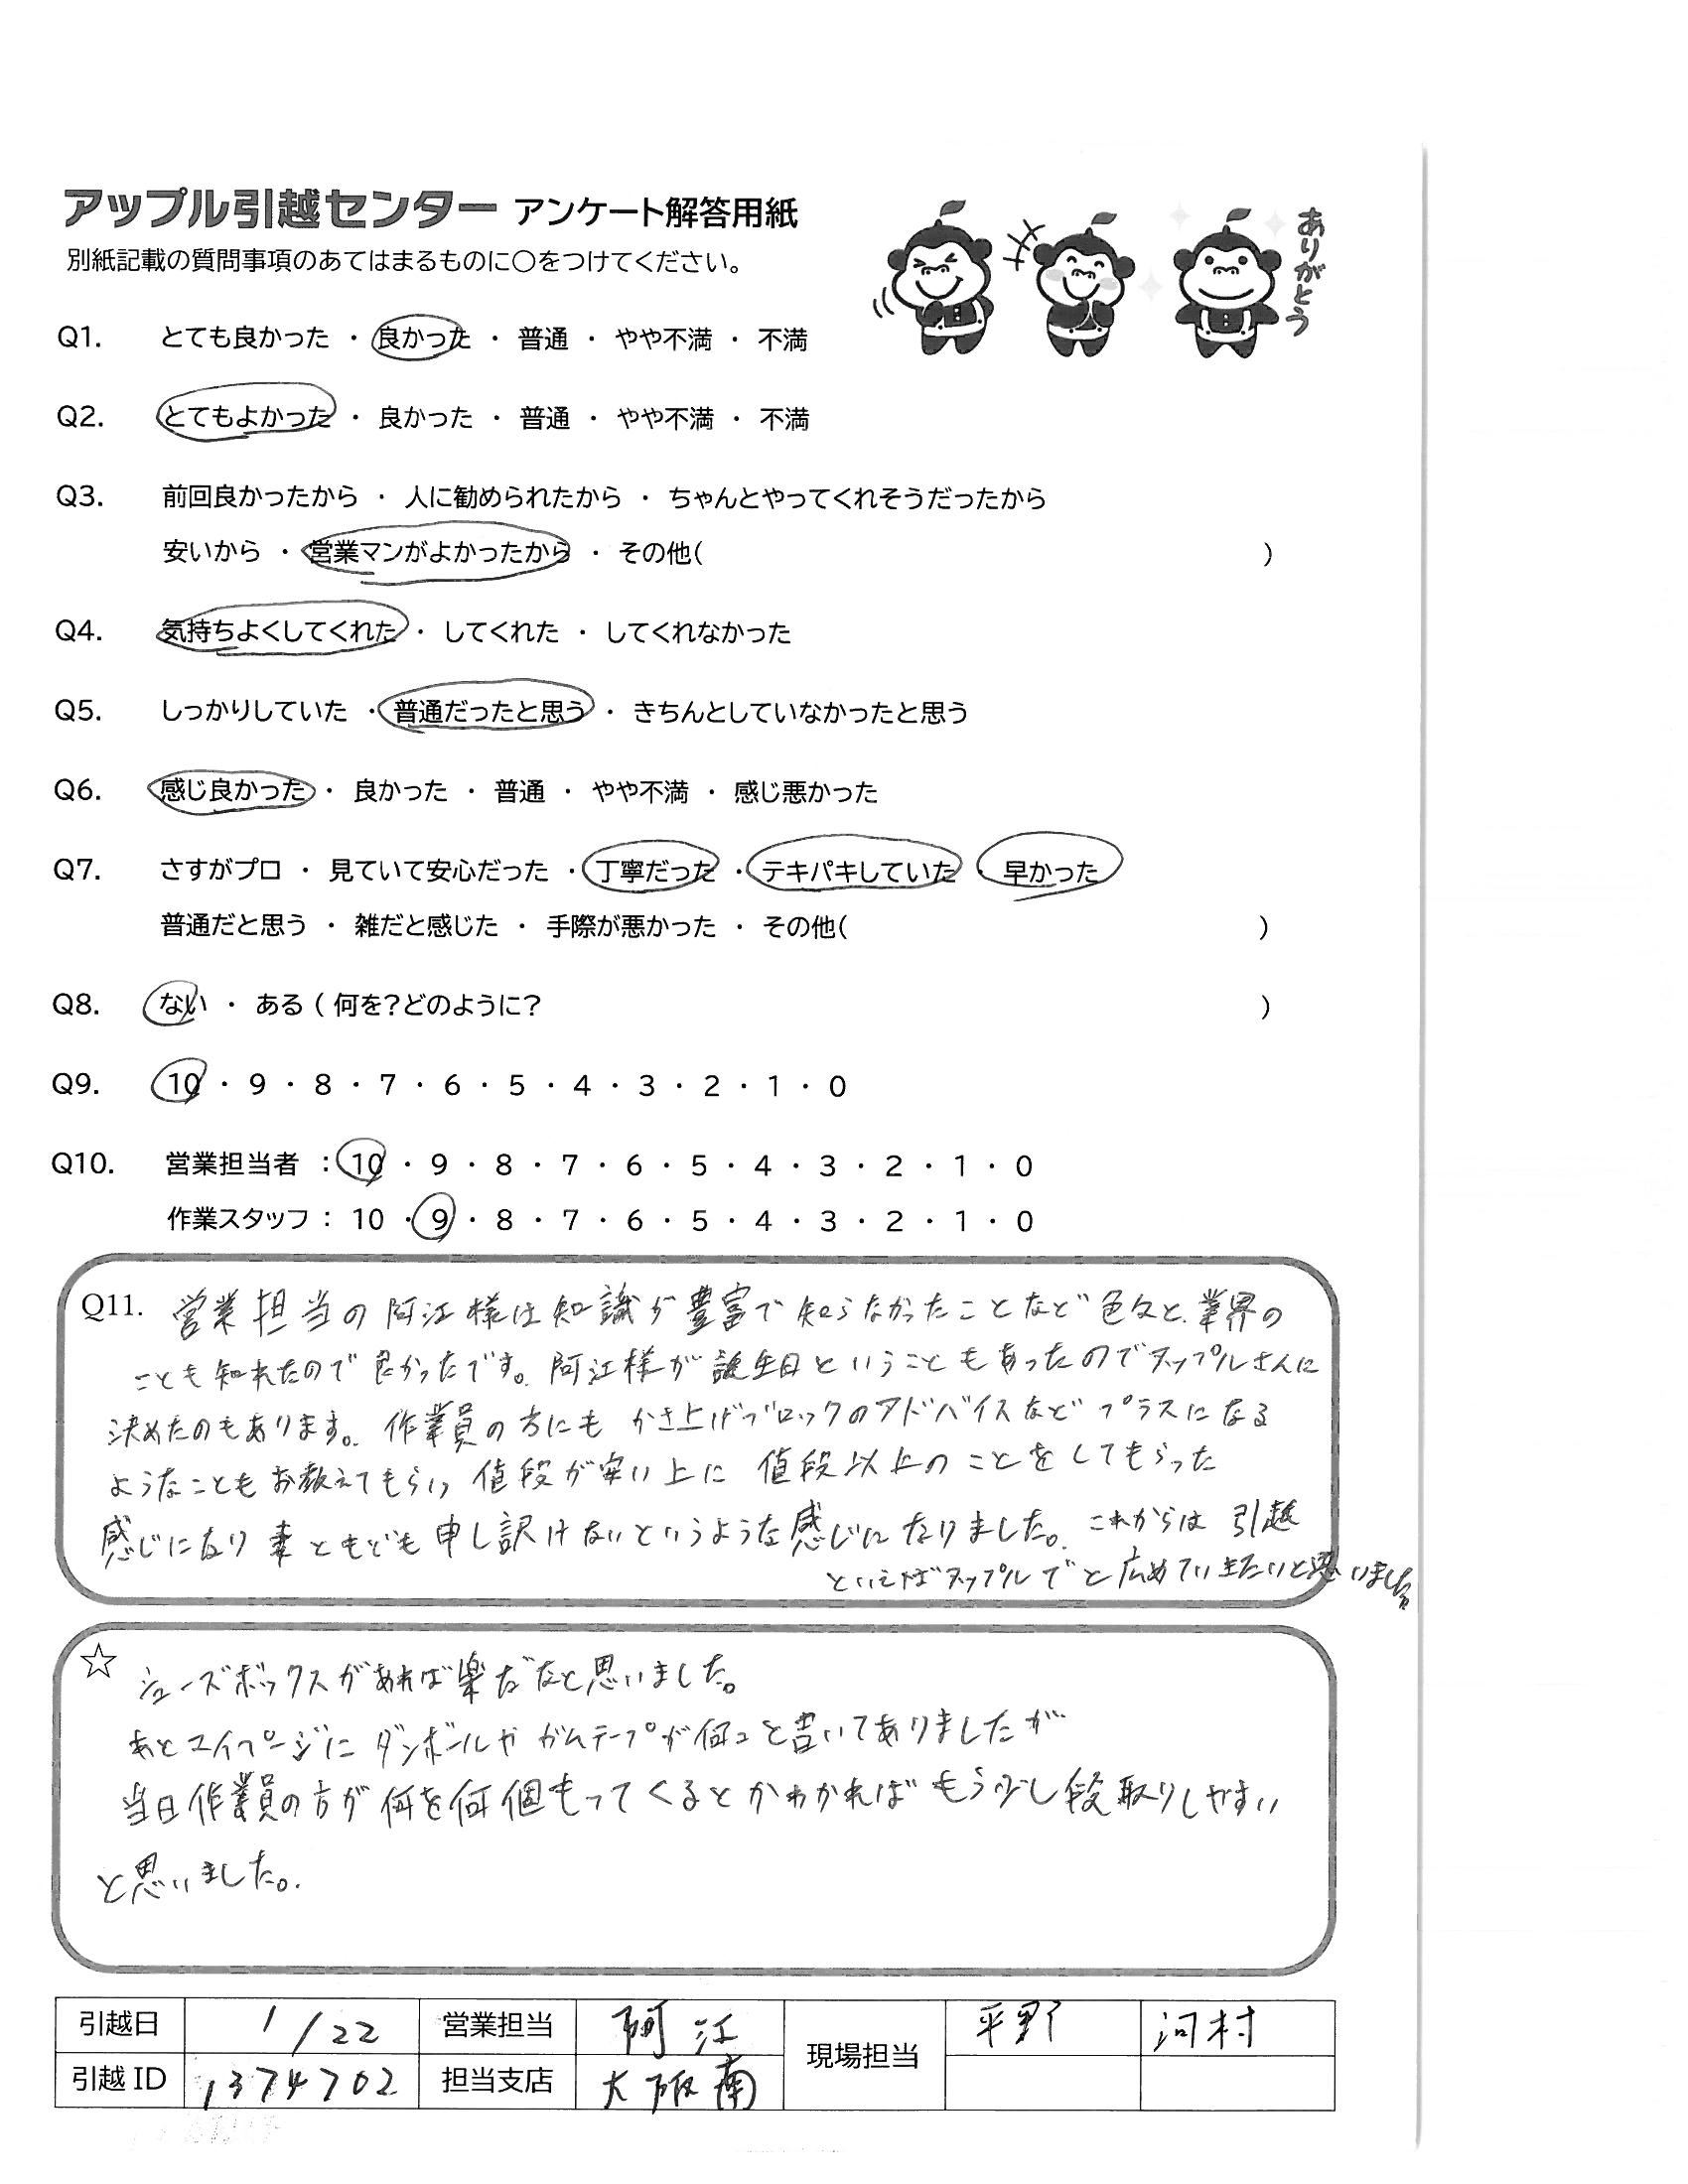 アップル引越センター アンケート解答用紙
別紙記載の質問事項のあてはまるものに○をつけてください。
ありがとう
Q1. とても良かった ・ 良かった ・ 普通 ・ やや不満 ・ 不満
Q2. とてもよかった ・ 良かった ・ 普通 ・ やや不満 ・ 不満
Q3. 前回良かったから ・ 人に勧められたから ・ ちゃんとやってくれそうだったから
安いから ・ 営業マンがよかったから ・ その他( )
Q4. 気持ちよくしてくれた ・ してくれた ・ してくれなかった
Q5. しっかりしていた ・ 普通だったと思う ・ きちんとしていなかったと思う
Q6. 感じ良かった ・ 良かった ・ 普通 ・ やや不満 ・ 感じ悪かった
Q7. さすがプロ ・ 見ていて安心だった ・ 丁寧だった ・ テキパキしていた ・ 早かった
普通だと思う ・ 雑だと感じた ・ 手際が悪かった ・ その他( )
Q8. ない ・ ある ( 何を?どのように? )
Q9. 10 ・ 9 ・ 8 ・ 7 ・ 6 ・ 5 ・ 4 ・ 3 ・ 2 ・ 1 ・ 0
Q10. 営業担当者 : 10 ・ 9 ・ 8 ・ 7 ・ 6 ・ 5 ・ 4 ・ 3 ・ 2 ・ 1 ・ 0
作業スタッフ : 10 ・ 9 ・ 8 ・ 7 ・ 6 ・ 5 ・ 4 ・ 3 ・ 2 ・ 1 ・ 0
Q11. 営業担当の阿江様は知識が豊富で知らなかったことなど色々と、業界の
ことも知れたので良かったです。阿江様が誕生日ということもあったのでアップルさんに
決めたのもあります。作業員の方にもかさ上げブロックのアドバイスなどプラスになる
ようなこともお教えてもらい、値段が安い上に値段以上のことをしてもらった
感じになり妻ともども申し訳けないというような感じになりました。これからは引越
といえばアップルでと広めていきたいと思いました
☆ シューズボックスがあれば楽だなと思いました。
あとマイページにダンボールやガムテープが何コと書いてありましたが
当日作業員の方が何を何個もってくるとかわかればもう少し段取りしやすい
と思いました。
引越日 1/22 営業担当 阿江 現場担当 平野 河村
引越 ID 1374702 担当支店 大阪南